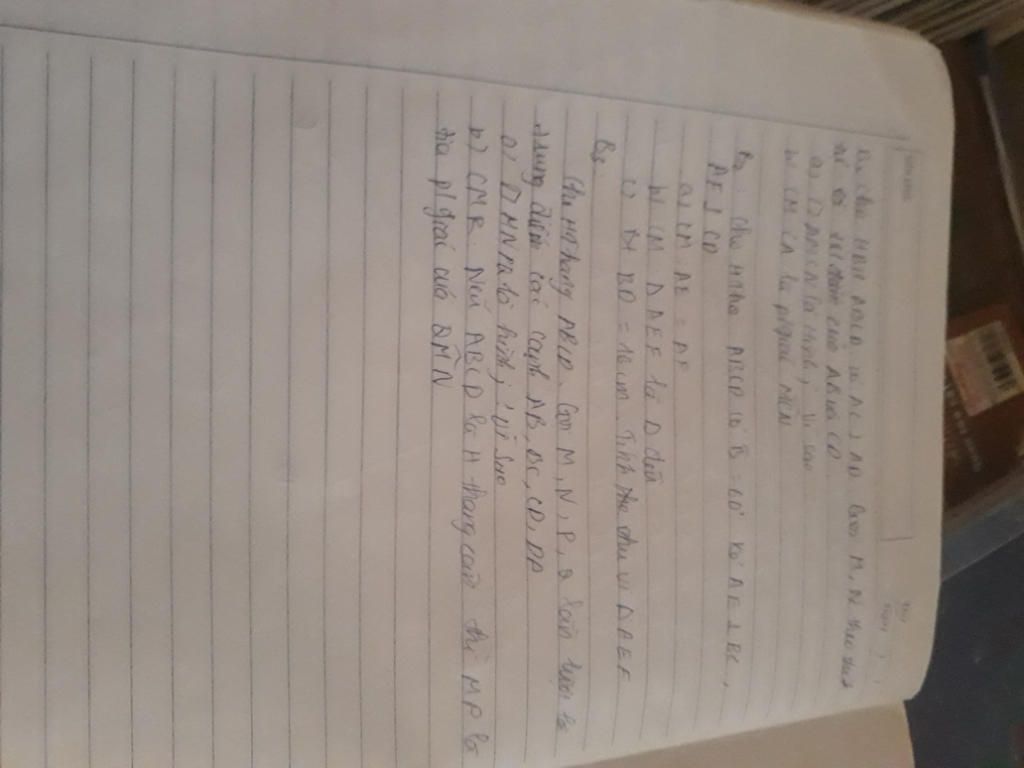 B1. Cho HBH ABCD có AC ⊥ AD. Gọi M, N theo thứ
tự là trung điểm của AB và CD.
a) AMCN là hình gì, vì sao
b) CM CA là p/giác MCN
B2. Cho H.thoi ABCD có B̂ = 60° kẻ AE ⊥ BC,
AF ⊥ CD
a) CM AE = AF
b) CM Δ AEF là Δ đều
c) BD = 16cm. Tính chu vi Δ AEF
B3.
Cho H thang ABCD. Gọi M, N, P, Q lần lượt là
trung điểm các cạnh AB, BC, CD, DA
a) MNPQ là hình gì, vì sao
b) CMR. Nếu ABCD là H thang cân thì MP là
tia p/giác của QM̂N